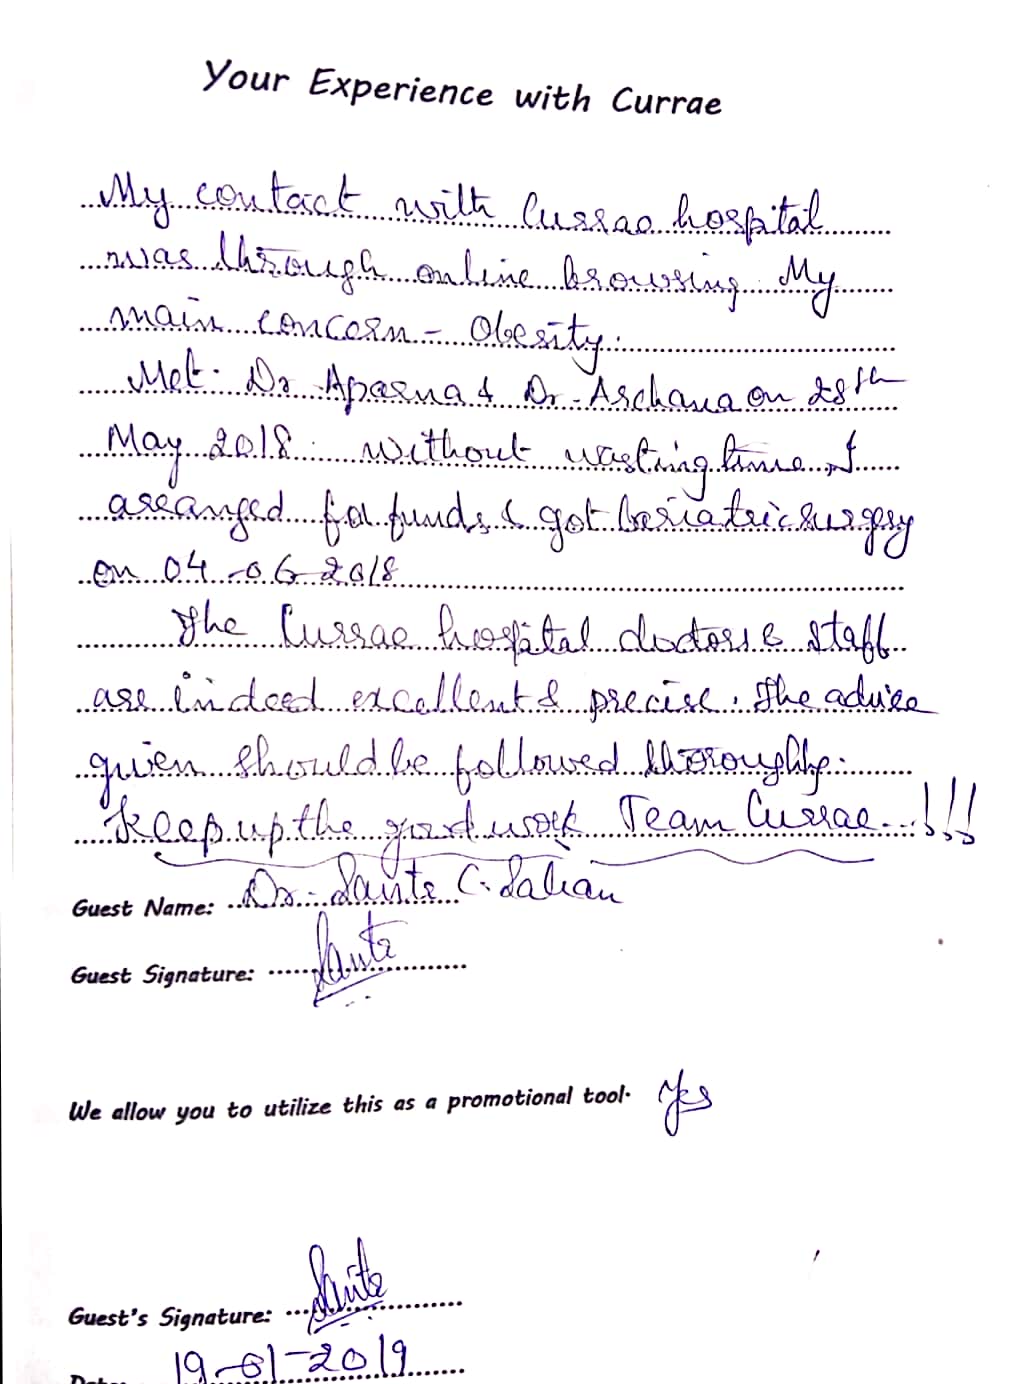 Your Experience with Currae
My contact with Currae hospital
was through online browsing. My
main concern - Obesity.
Met Dr. Aparna & Dr. Archana on 28th
May 2018. Without wasting time, I
arranged for funds & got bariatric surgery
on 04-06-2018
The Currae hospital doctors & staff
are indeed excellent & precise. The advice
given should be followed thoroughly.
Keep up the good work Team Currae...!!!
Guest Name: Dr. C. Salian
Guest Signature:
We allow you to utilize this as a promotional tool. Yes
Guest's Signature:
Date: 19-01-2019